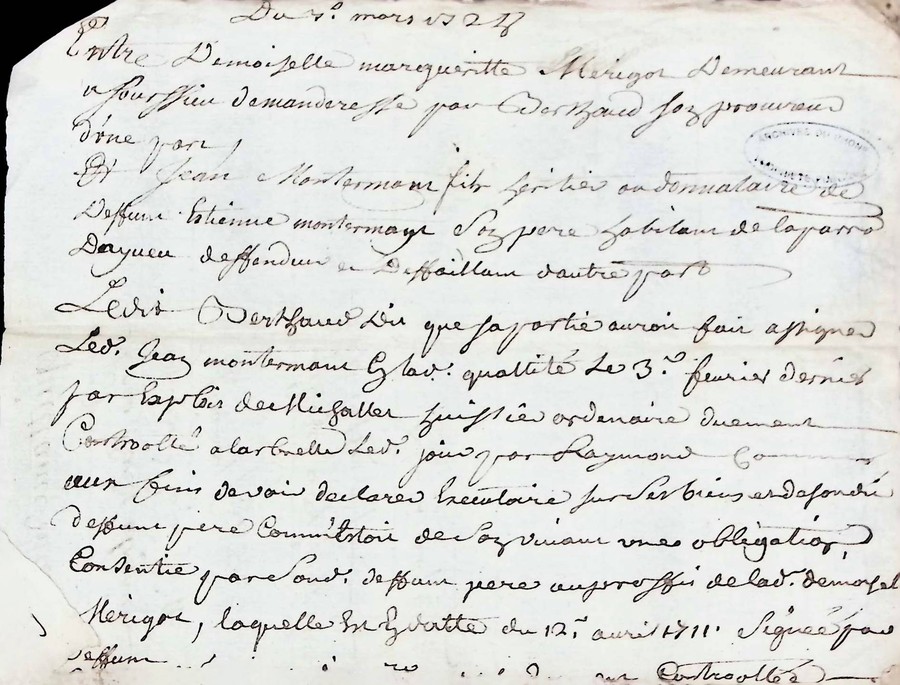 Du 3e mars 1728
Entre Demoiselle margueritte Merigot Demeurant
a fourssieu demanderesse par Berthaud son procureur
d'une part
Et Jean Montermant fils heritier ou donnataire de
Deffunt Estienne montermant son pere habitant de la parro
Dayeu deffendeur et Deffaillant d'autre part
Ledit Berthaud Dit que sa partie auroit fait assigner
Led. Jean montermant En lad. quallité Le 3e fevrier dernier
par Exploit de Michallet huissier ordenaire duement
Controollé a larbrelle Led. jour par Raymond Commis
aux fins de voir declarer Executoire sur Ses biens et de sondit
deffunt pere Comm'Estoit de son vivant une obligation
Consentie par Sond. deffunt pere au proffit de lad. demoisel
Merigot, laquelle En datte du 12e avril 1711 Signée par
deffunt Controollée
ARCHIVES DU RHONE